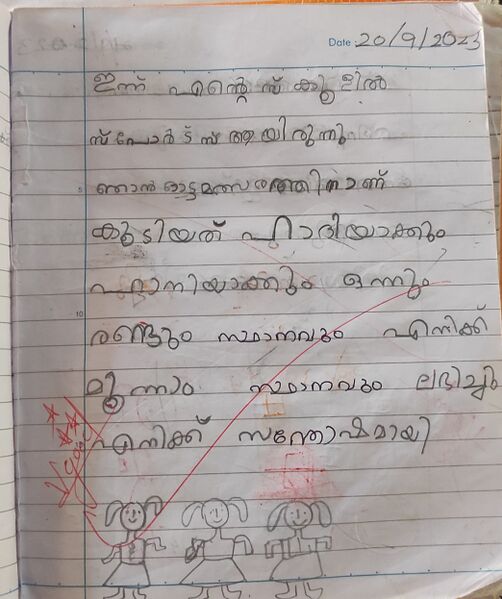 Date: 20/9/2023
ഇന്ന് എന്റെ സ്കൂളിൽ
സ്പോർട്സ് ആയിരുന്നു
ഞാൻ ഓട്ടമത്സരത്തിനാണ്
കൂടിയത് ഹാദിയാക്കും
ഫാനിയാക്കും ഒന്നും
രണ്ടും സ്ഥാനവും എനിക്ക്
മൂന്നാം സ്ഥാനവും ലഭിച്ചു
എനിക്ക് സന്തോഷമായി